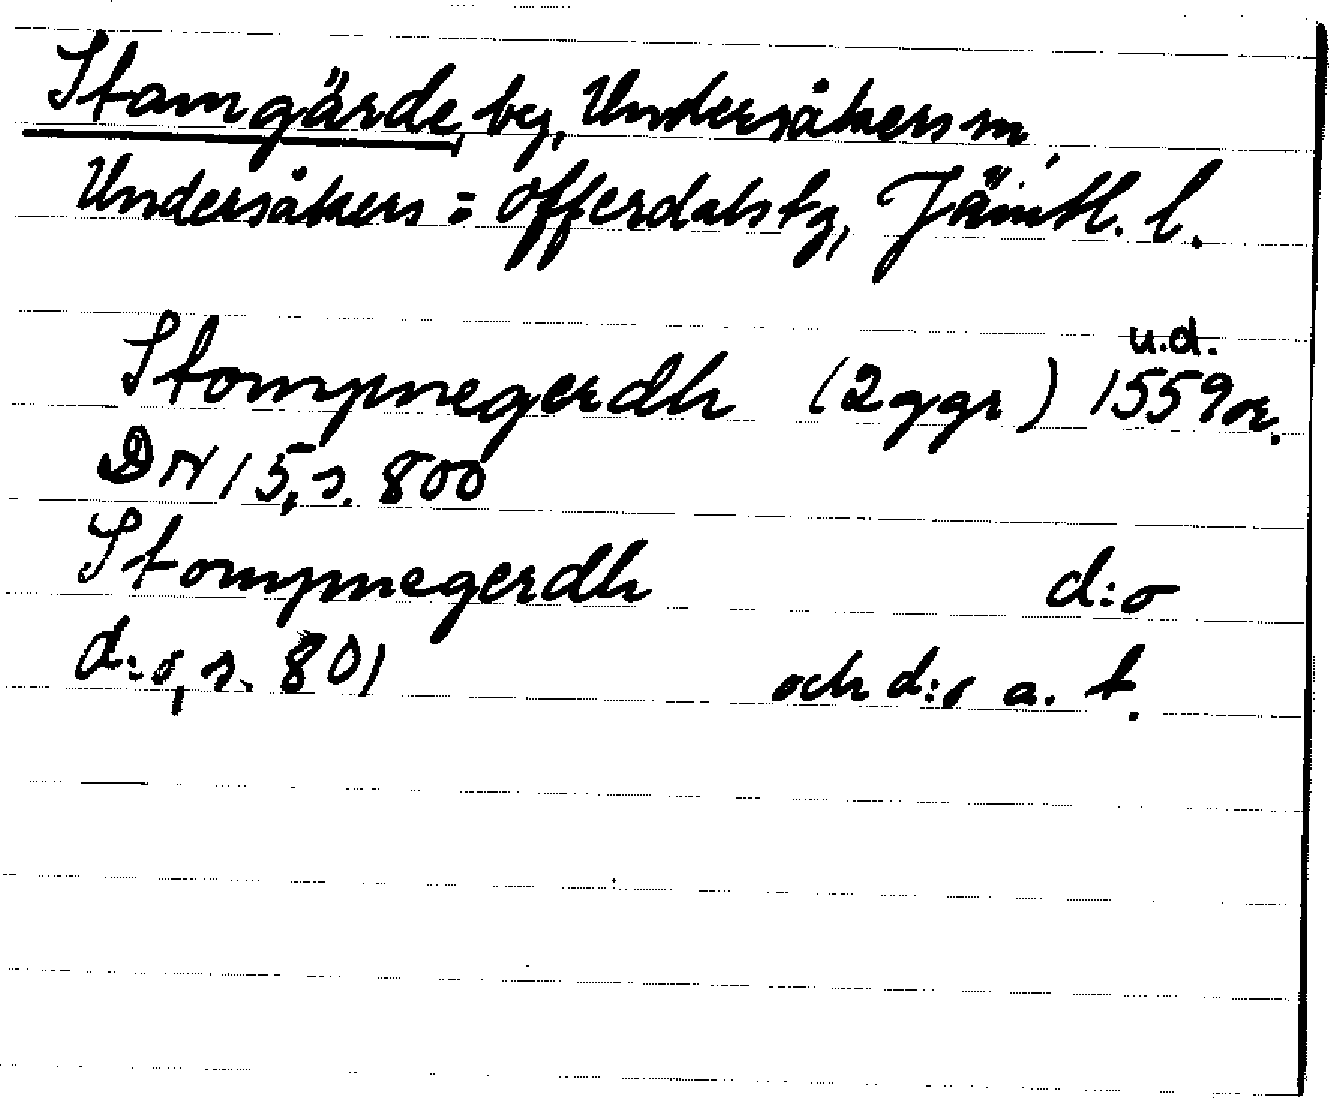 Stamgärde, by, Undersåkers sn,
Undersåkers = Offerdals tg, Jämtl. l.
u.d.
Stompnegerdh (2 ggr) 1559 or.
DN 15, s. 800
Stompnegerdh d:o
d:o, s. 801 och d:o a. st.